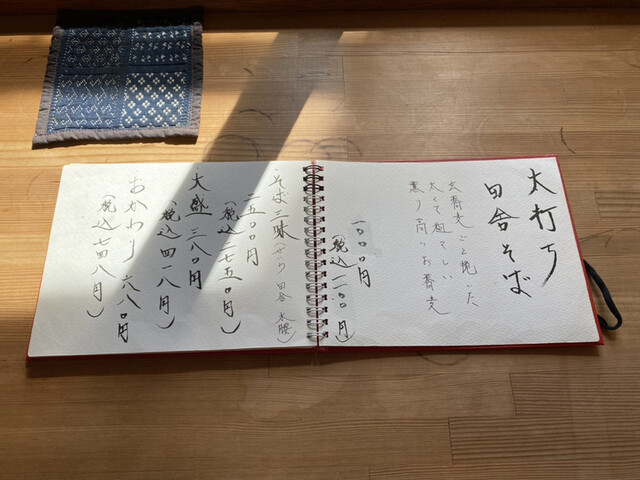 太打ち
田舎そば
玄蕎麦ごと挽いた
太くて粗々しい
薫り高いお蕎麦
一〇〇〇円
(税込一一〇〇円)
そば三昧(せいろ 田舎 水腰)
二五〇〇円
(税込二七五〇円)
大盛三八〇円
(税込四一八円)
おかわり六八〇円
(税込七四八円)